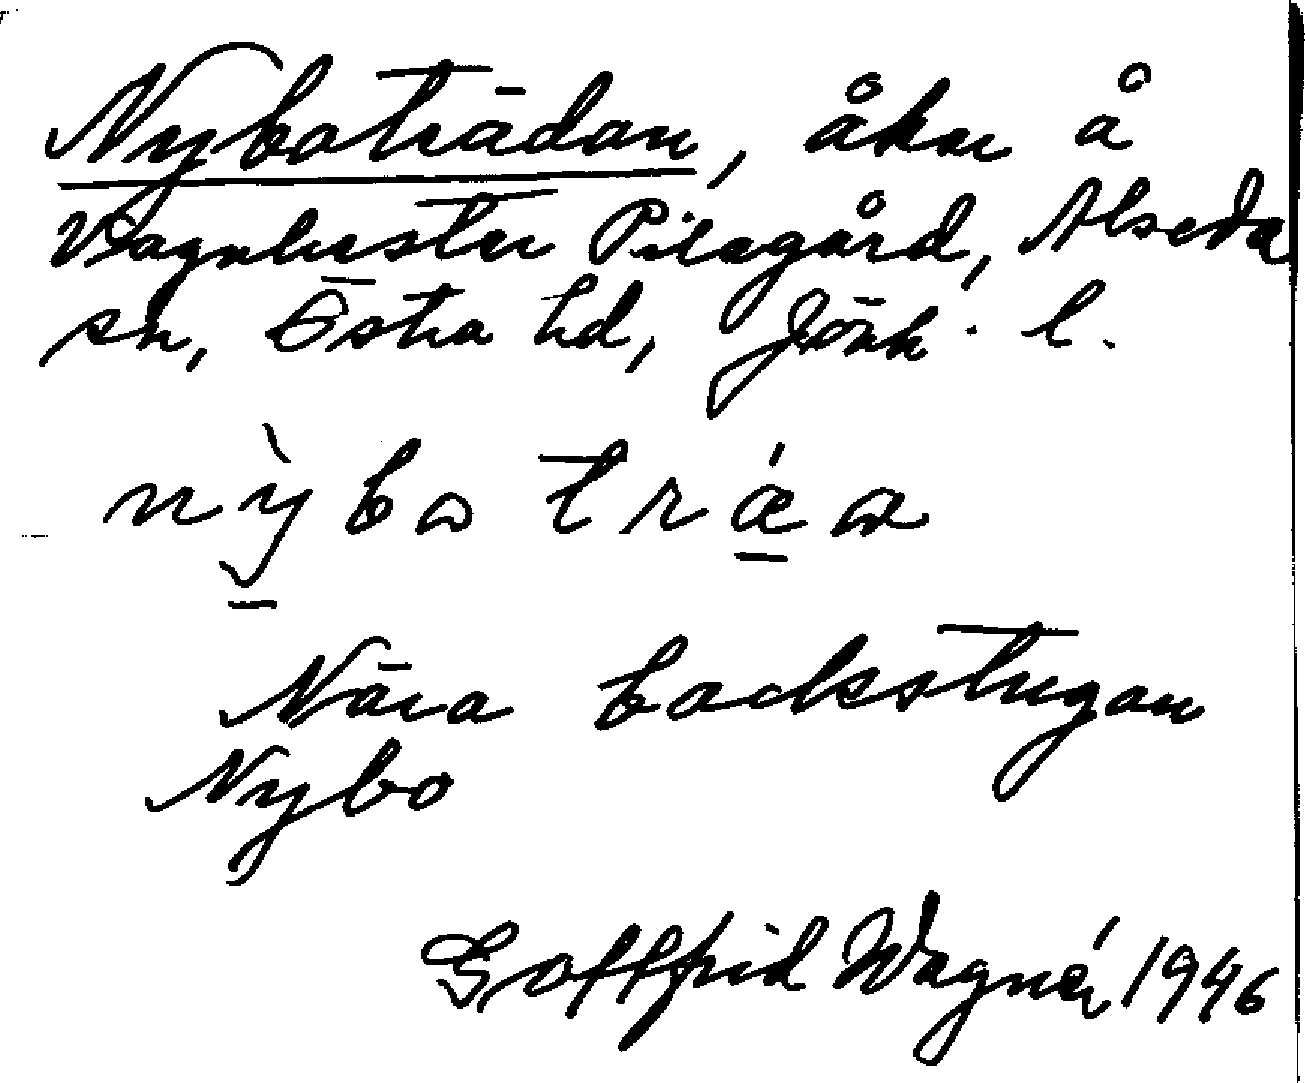 Nyboträdan, åker å
Vagnhester Pilagård, Alseda
sn, Östra hd, Jönk. l.
nỳbo trǽa
Nära backstugan
Nybo
Gottfrid Wagnér 1946